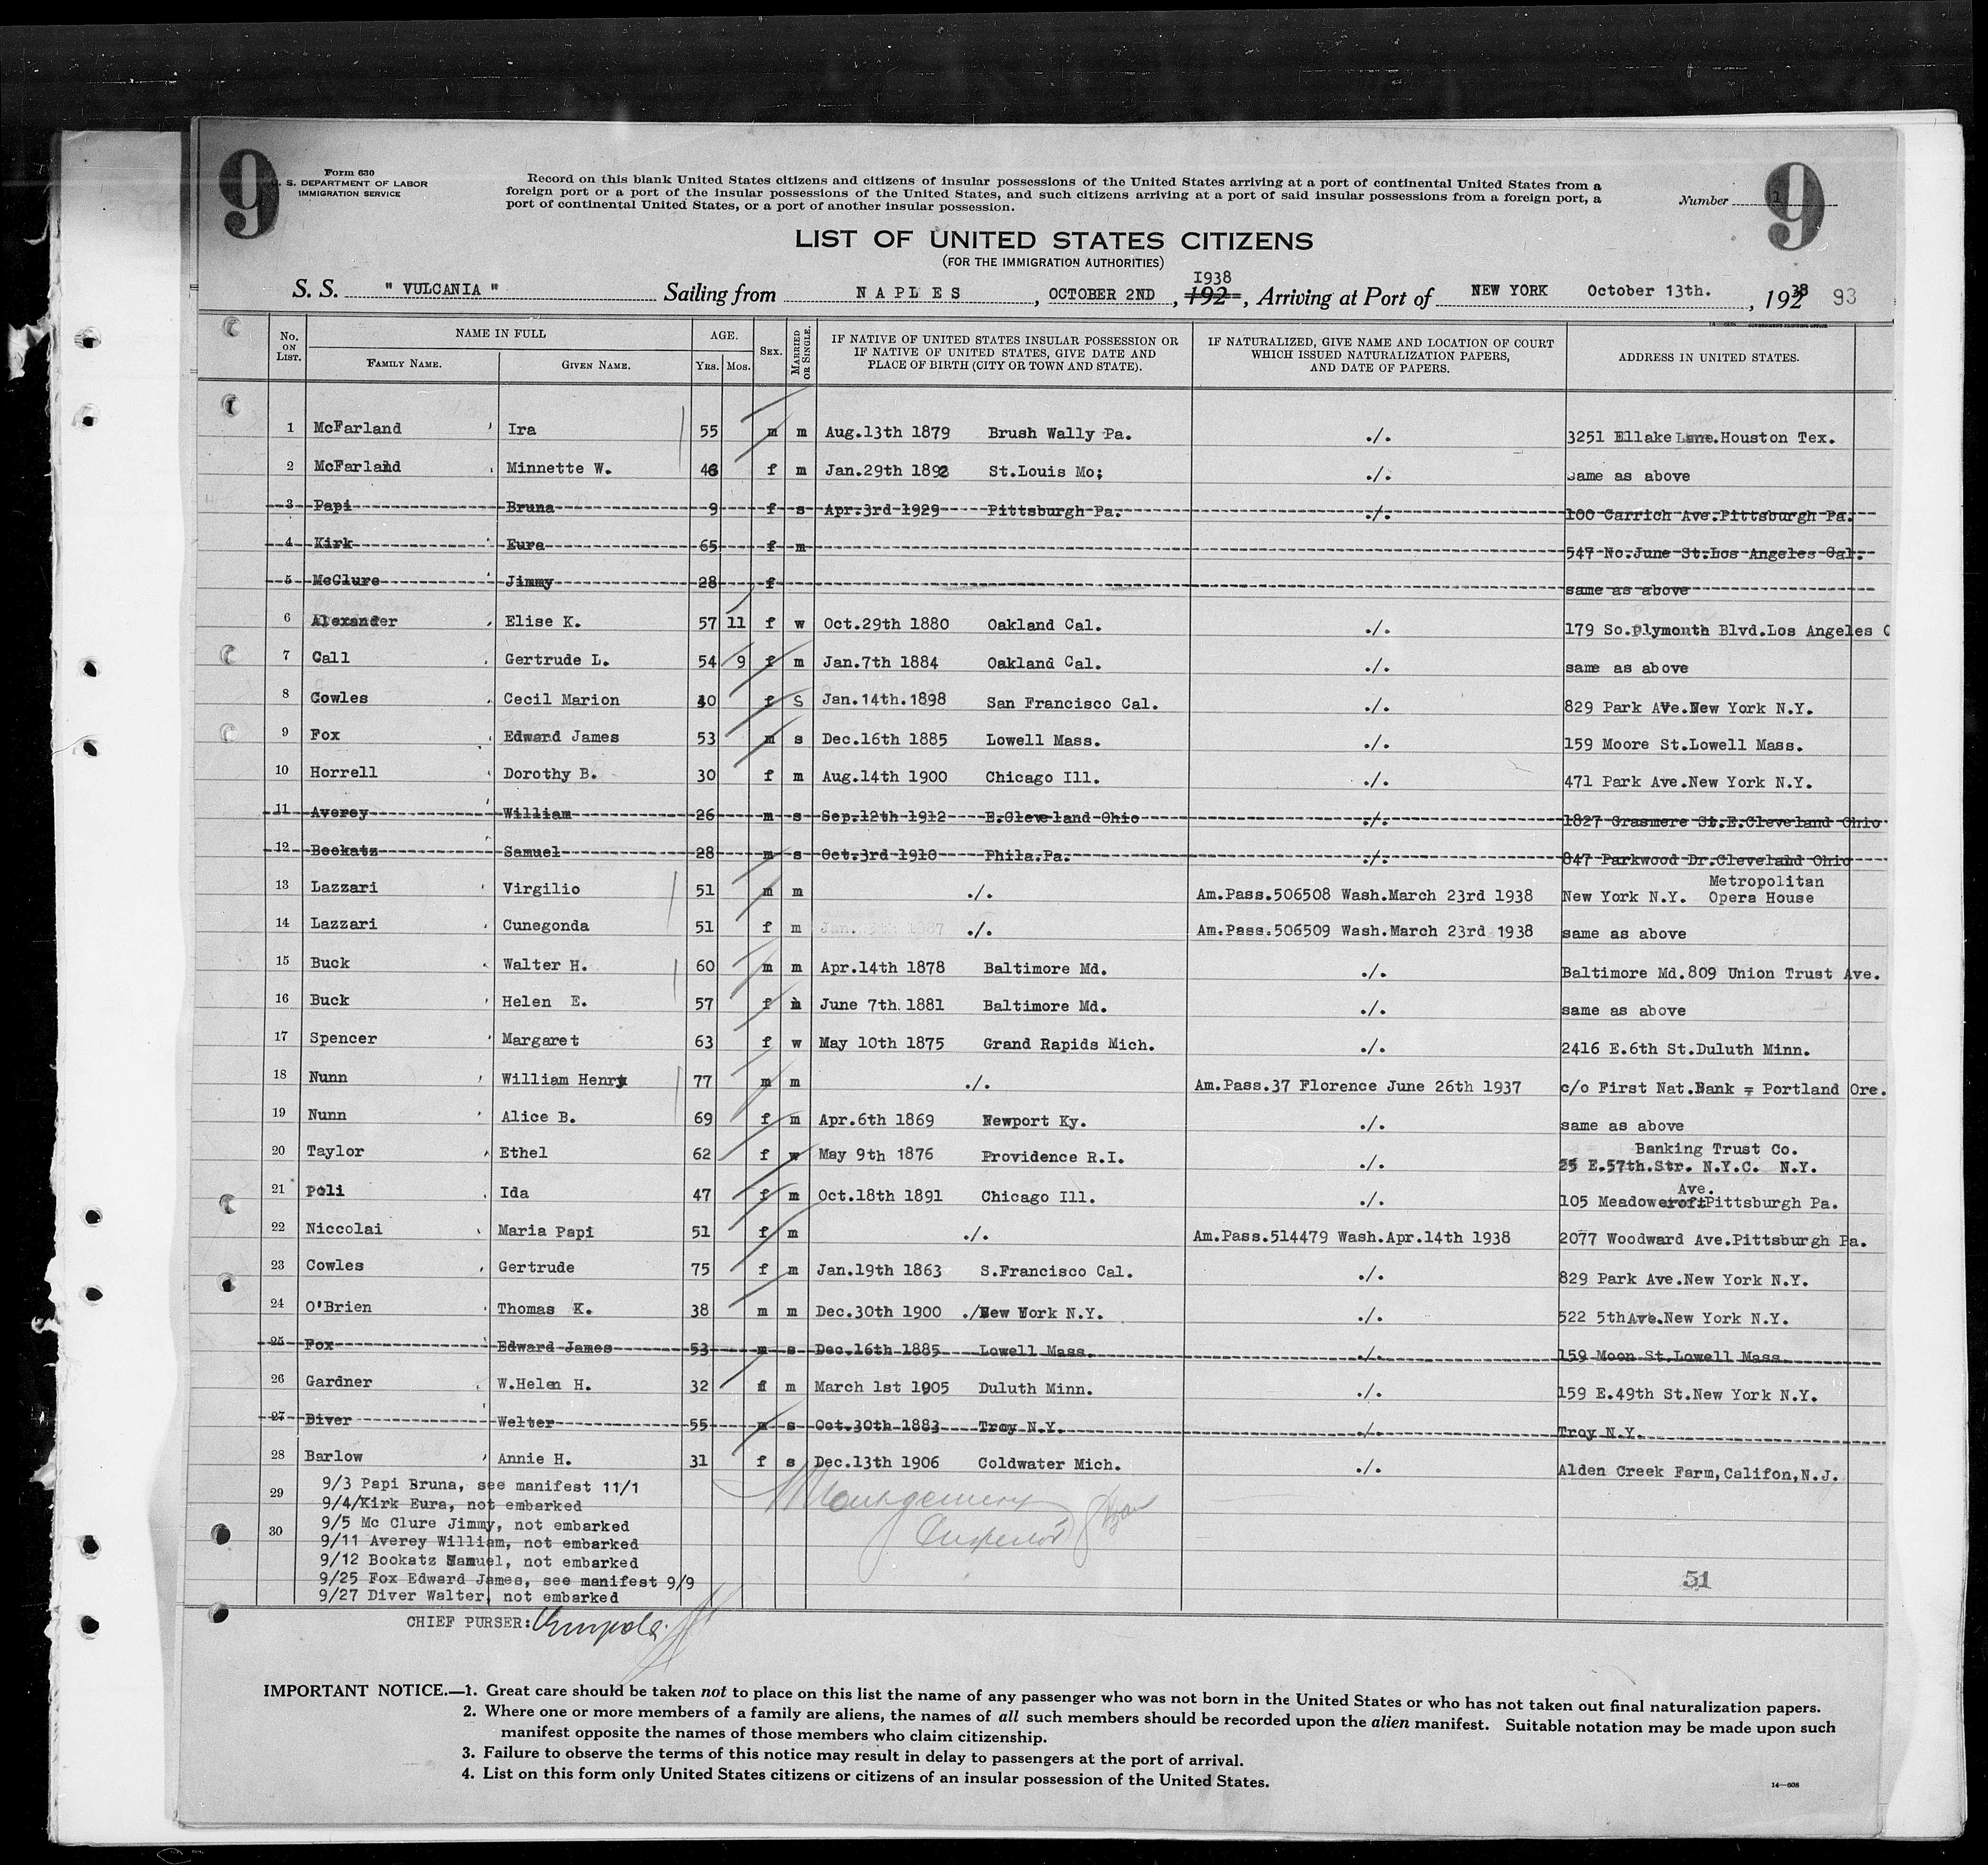 9
Form 630
U. S. DEPARTMENT OF LABOR
IMMIGRATION SERVICE
Record on this blank United States citizens and citizens of insular possessions of the United States arriving at a port of continental United States from a
foreign port or a port of the insular possessions of the United States, and such citizens arriving at a port of said insular possessions from a foreign port, a
port of continental United States, or a port of another insular possession.
Number 1
9
LIST OF UNITED STATES CITIZENS
(FOR THE IMMIGRATION AUTHORITIES)
S. S. " VULCANIA " Sailing from NAPLES, OCTOBER 2ND, 192 1938, Arriving at Port of NEW YORK October 13th., 1938 93
No. ON LIST. NAME IN FULL FAMILY NAME. GIVEN NAME. AGE. YRS. MOS. SEX. MARRIED OR SINGLE. IF NATIVE OF UNITED STATES INSULAR POSSESSION OR IF NATIVE OF UNITED STATES, GIVE DATE AND PLACE OF BIRTH (CITY OR TOWN AND STATE). IF NATURALIZED, GIVE NAME AND LOCATION OF COURT WHICH ISSUED NATURALIZATION PAPERS, AND DATE OF PAPERS. ADDRESS IN UNITED STATES.
1 McFarland Ira 55 m m Aug.13th 1879 Brush Wally Pa. ./. 3251 Ellake Lane.Houston Tex.
2 McFarland Minnette W. 46 f m Jan.29th 1892 St.Louis Mo; ./. same as above
3 Papi Bruna 9 f s Apr.3rd 1929 Pittsburgh Pa. ./. 100 Carrich Ave.Pittsburgh Pa.
4 Kirk Eura 65 f m 547 No.June St.Los Angeles Cal.
5 McClure Jimmy 28 f same as above
6 Alexander Elise K. 57 11 f w Oct.29th 1880 Oakland Cal. ./. 179 So.Plymouth Blvd.Los Angeles C
7 Call Gertrude L. 54 9 f m Jan.7th 1884 Oakland Cal. ./. same as above
8 Cowles Cecil Marion 40 f S Jan.14th.1898 San Francisco Cal. ./. 829 Park AVe.New York N.Y.
9 Fox Edward James 53 m s Dec.16th 1885 Lowell Mass. ./. 159 Moore St.Lowell Mass.
10 Horrell Dorothy B. 30 f m Aug.14th 1900 Chicago Ill. ./. 471 Park Ave.New York N.Y.
11 Averey William 26 m s Sep.12th 1912 E.Cleveland Ohio ./. 1827 Grasmere St.E.Cleveland Ohio
12 Bookatz Samuel 28 m s Oct.3rd 1910 Phila.Pa. ./. 847 Parkwood Dr.Cleveland Ohio
13 Lazzari Virgilio 51 m m ./. Am.Pass.506508 Wash.March 23rd 1938 New York N.Y. Metropolitan Opera House
14 Lazzari Cunegonda 51 f m ./. Am.Pass.506509 Wash.March 23rd 1938 same as above
15 Buck Walter H. 60 m m Apr.14th 1878 Baltimore Md. ./. Baltimore Md.809 Union Trust Ave.
16 Buck Helen E. 57 f m June 7th 1881 Baltimore Md. ./. same as above
17 Spencer Margaret 63 f w May 10th 1875 Grand Rapids Mich. ./. 2416 E.6th St.Duluth Minn.
18 Nunn William Henry 77 m m ./. Am.Pass.37 Florence June 26th 1937 c/o First Nat.Bank = Portland Ore.
19 Nunn Alice B. 69 f m Apr.6th 1869 Newport Ky. ./. same as above
20 Taylor Ethel 62 f w May 9th 1876 Providence R.I. ./. Banking Trust Co. 25 E.57th.Str. N.Y.C. N.Y.
21 Poli Ida 47 f m Oct.18th 1891 Chicago Ill. ./. 105 Meadowcroft Ave. Pittsburgh Pa.
22 Niccolai Maria Papi 51 f m ./. Am.Pass.514479 Wash.Apr.14th 1938 2077 Woodward Ave.Pittsburgh Pa.
23 Cowles Gertrude 75 f m Jan.19th 1863 S.Francisco Cal. ./. 829 Park Ave.New York N.Y.
24 O'Brien Thomas K. 38 m m Dec.30th 1900 ./New York N.Y. ./. 522 5thAve.New York N.Y.
25 Fox Edward James 53 m s Dec.16th 1885 Lowell Mass. ./. 159 Moon St.Lowell Mass.
26 Gardner W.Helen H. 32 f m March 1st 1905 Duluth Minn. ./. 159 E.49th St.New York N.Y.
27 Diver Welter 55 m s Oct.30th 1883 Troy N.Y. ./. Troy N.Y.
28 Barlow Annie H. 31 f s Dec.13th 1906 Coldwater Mich. ./. Alden Creek Farm,Califon,N.J.
9/3 Papi Bruna, see manifest 11/1
29
9/4/Kirk Eura, not embarked
9/5 Mc Clure Jimmy, not embarked
30
9/11 Averey William, not embarked
9/12 Bookatz Samuel, not embarked
9/25 Fox Edward James, see manifest 9/9
9/27 Diver Walter, not embarked
Montgomery
Inspector
51
CHIEF PURSER:
IMPORTANT NOTICE.—1. Great care should be taken not to place on this list the name of any passenger who was not born in the United States or who has not taken out final naturalization papers.
2. Where one or more members of a family are aliens, the names of all such members should be recorded upon the alien manifest. Suitable notation may be made upon such
manifest opposite the names of those members who claim citizenship.
3. Failure to observe the terms of this notice may result in delay to passengers at the port of arrival.
4. List on this form only United States citizens or citizens of an insular possession of the United States.
14—608